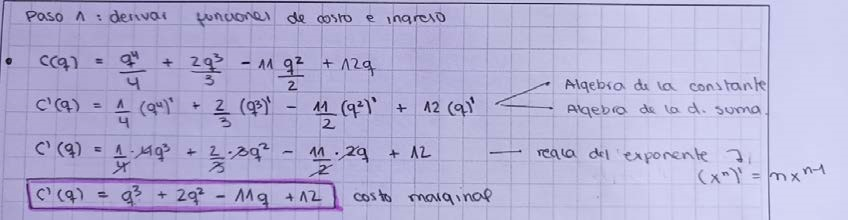 Paso 1: derivar funciones de costo e ingreso
• C(q) = q⁴/4 + 2q³/3 - 11 q²/2 + 12q
C'(q) = 1/4 (q⁴)' + 2/3 (q³)' - 11/2 (q²)' + 12 (q)' Algebra de la constante
Algebra de la d. suma.
C'(q) = 1/4 · 4q³ + 2/3 · 3q² - 11/2 · 2q + 12 — regla del exponente
(xⁿ)' = nxⁿ⁻¹
C'(q) = q³ + 2q² - 11q + 12 costo marginal